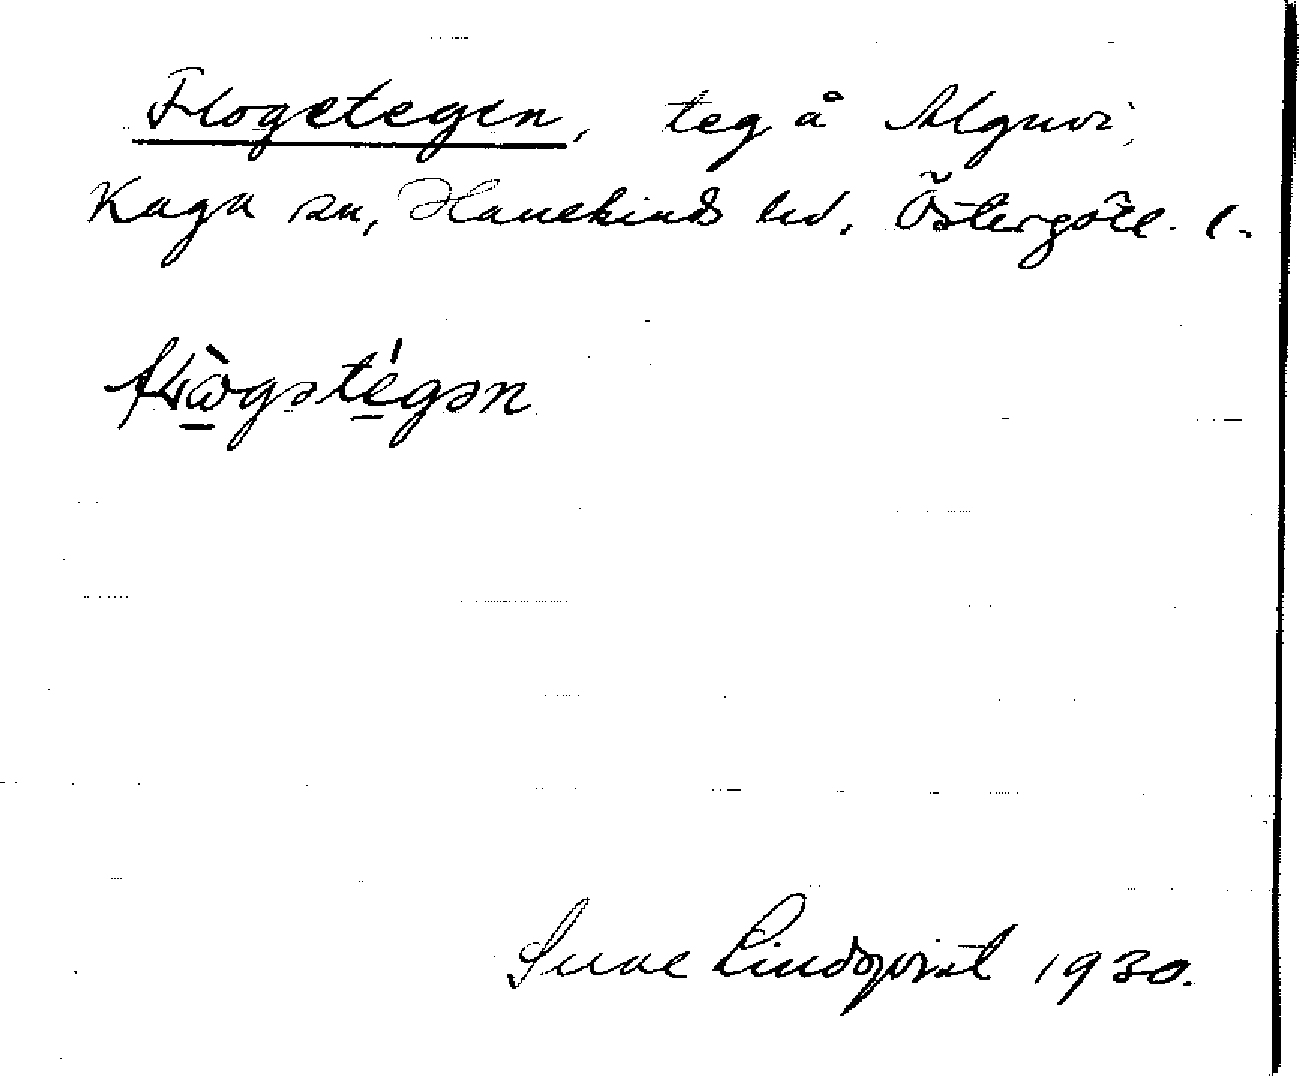 Flogetegen, teg å Alguvi,
Kaga sn, Hanekinds hd. Östergötl. l.
Sune Lindqvist 1930.